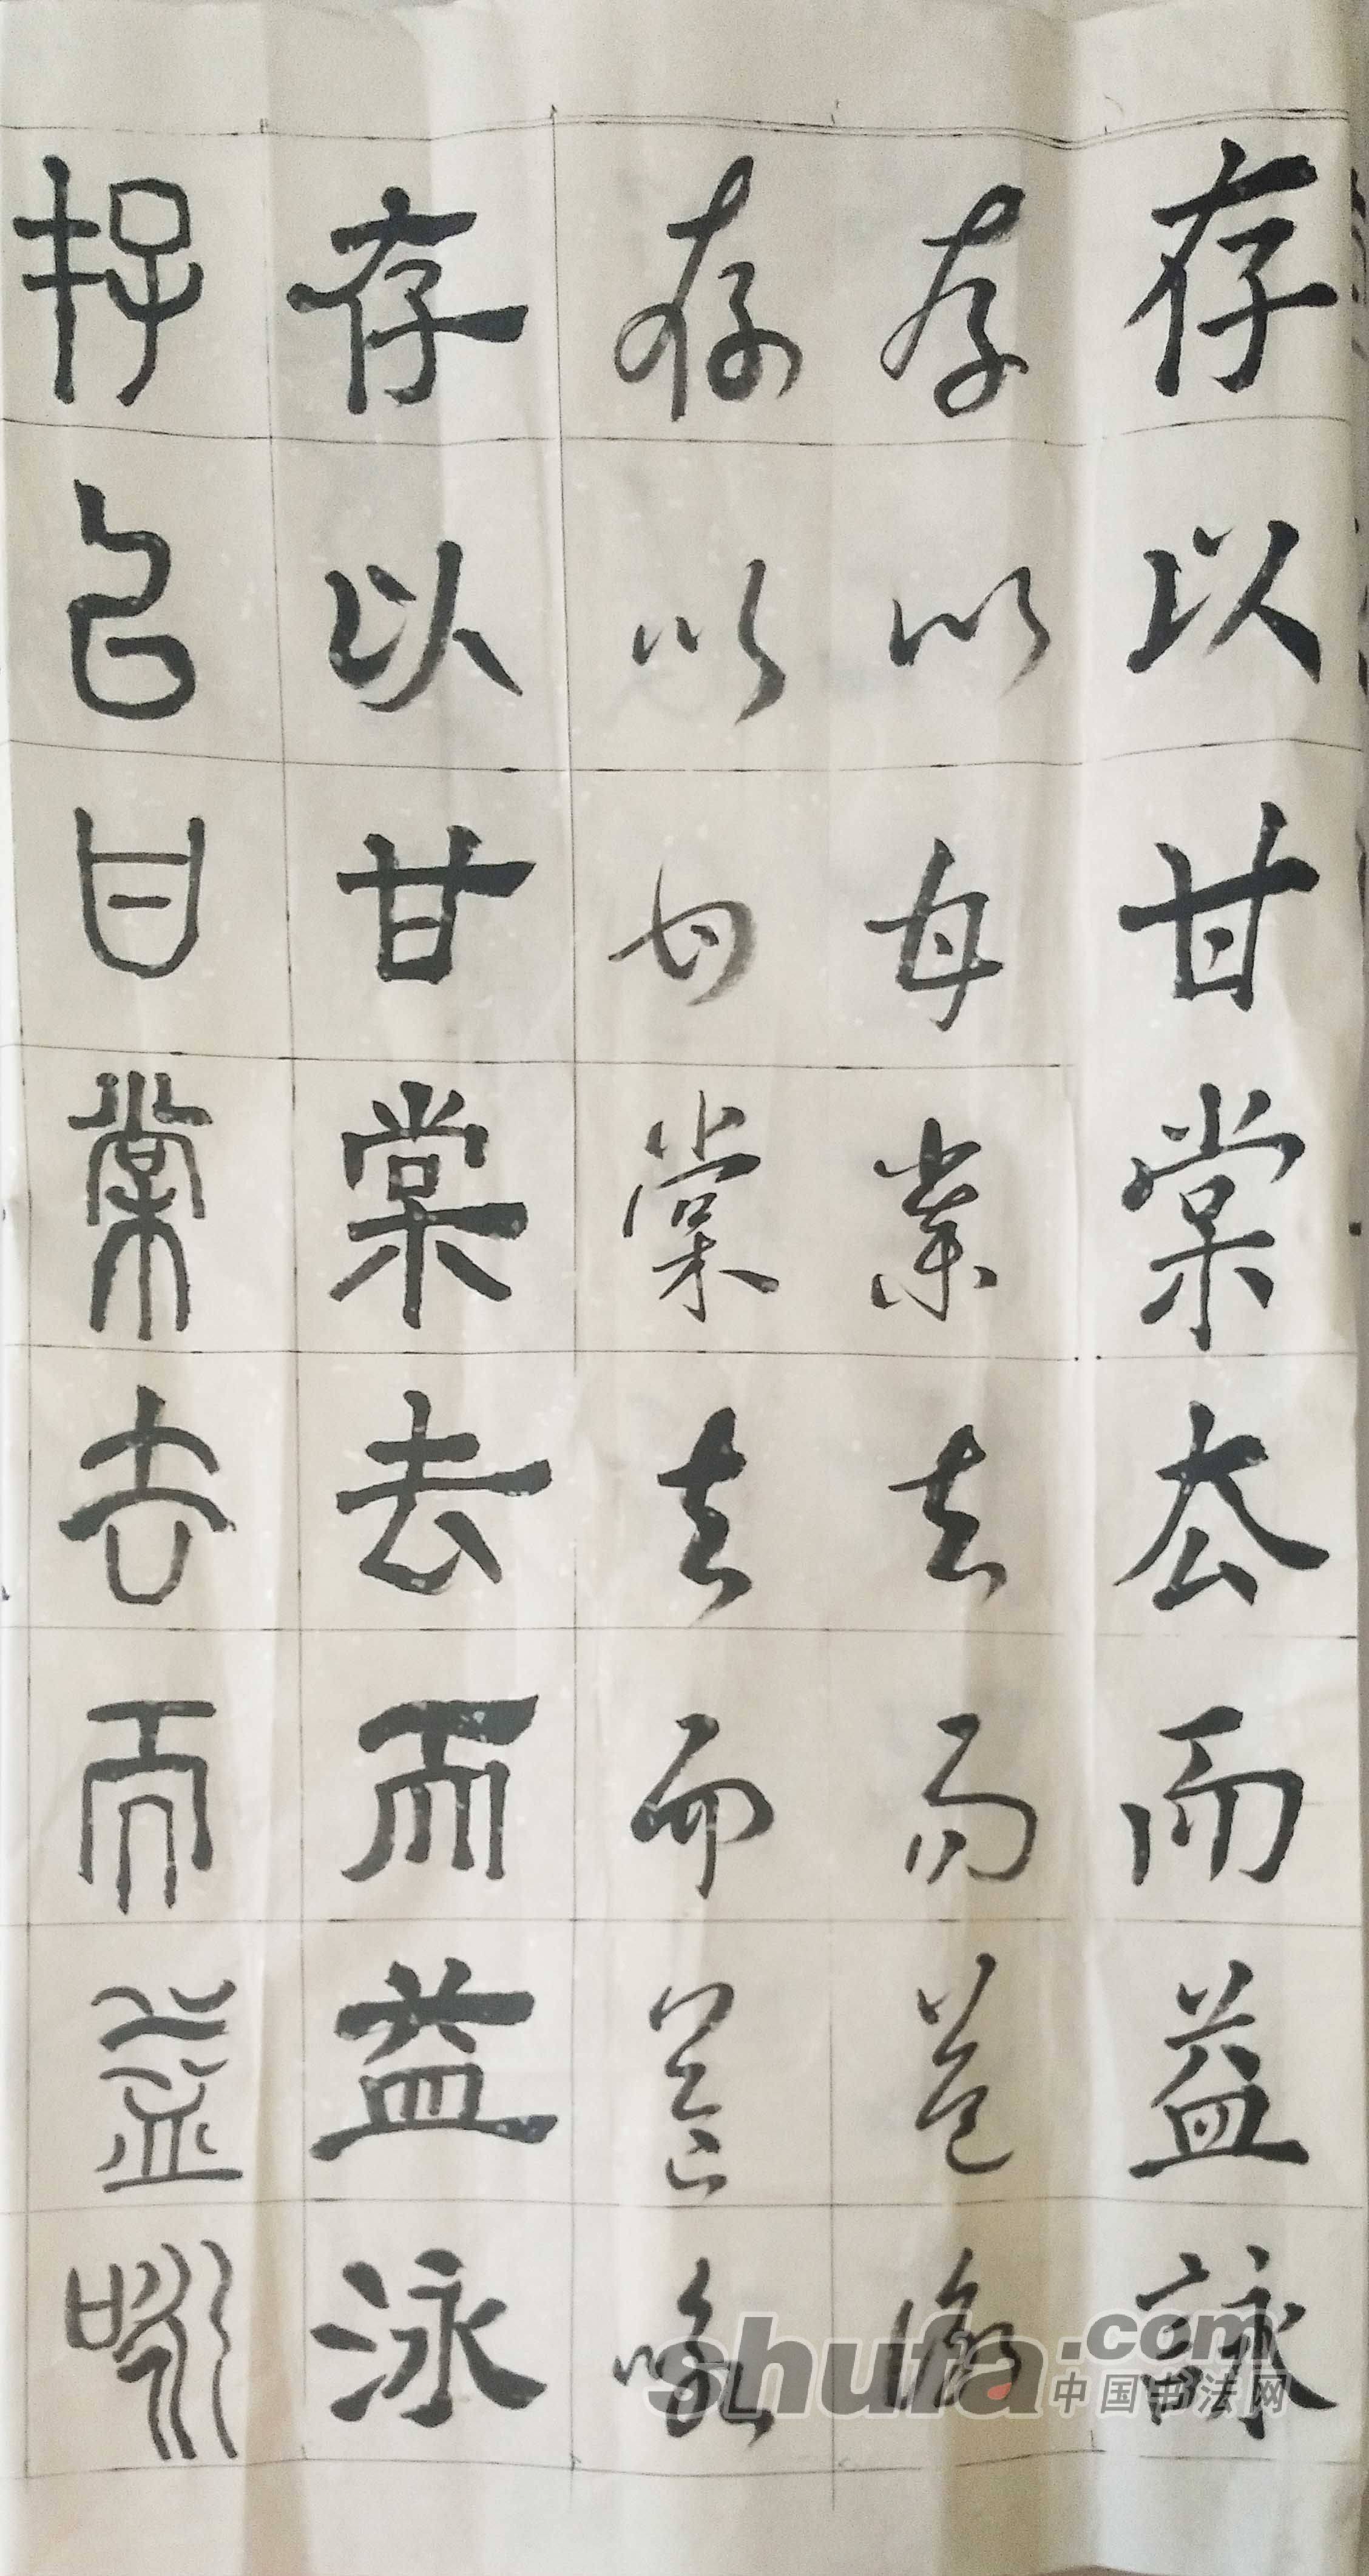 存以甘棠去而益詠
存以甘棠去而益詠
存以甘棠去而益咏
存以甘棠去而益泳
存以甘棠去而益咏
shufa.com
中国书法网